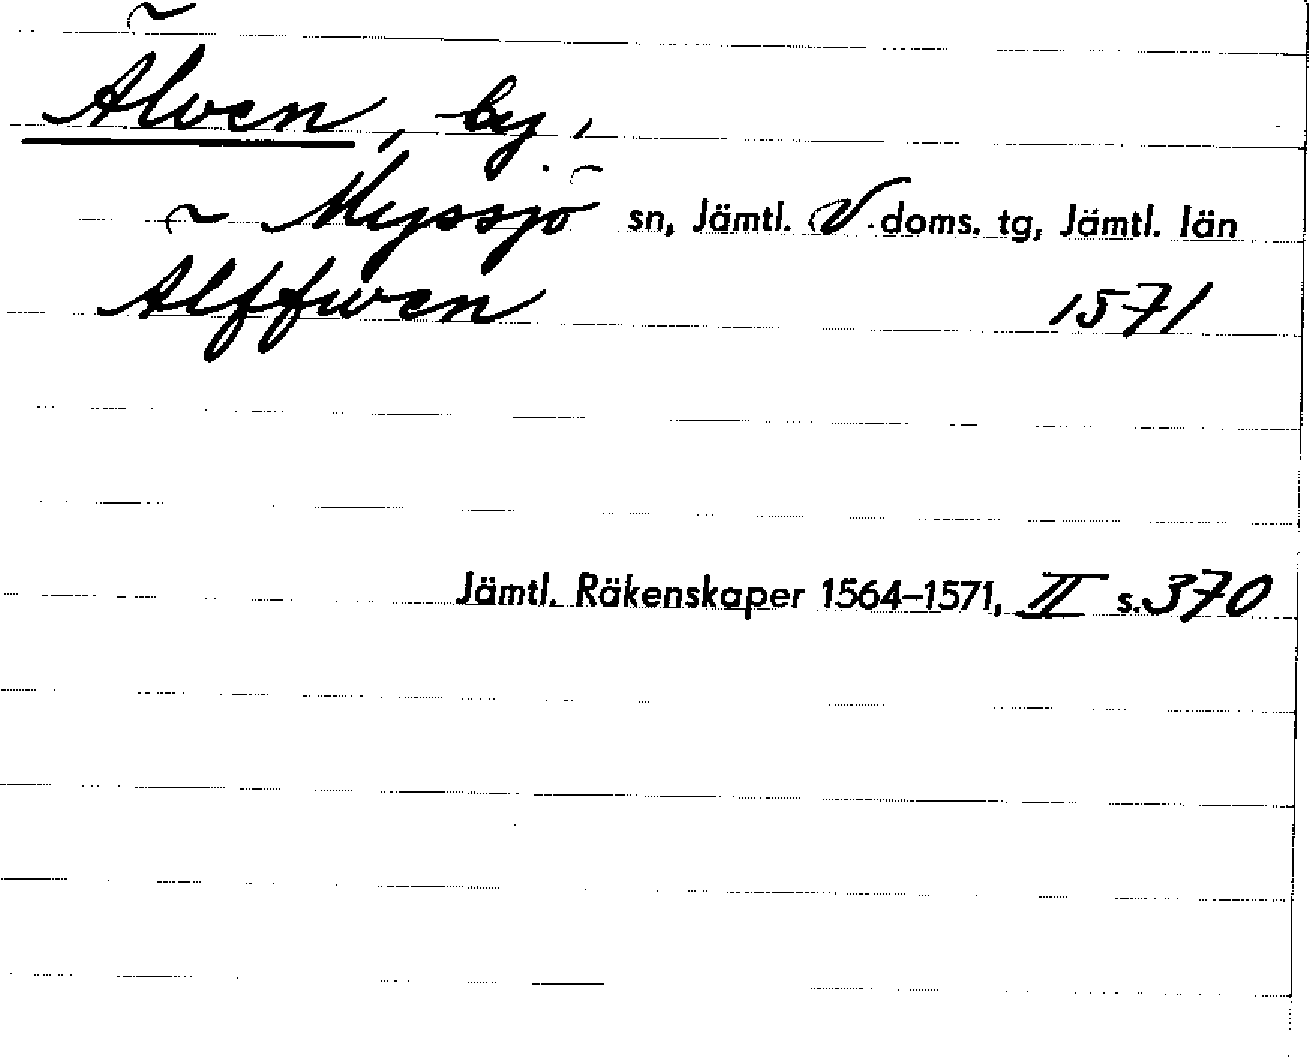 Älven, by,
~ Myssjö sn, Jämtl. V. doms. tg, Jämtl. län
Alffwen 1571
Jämtl. Räkenskaper 1564–1571, II s. 370